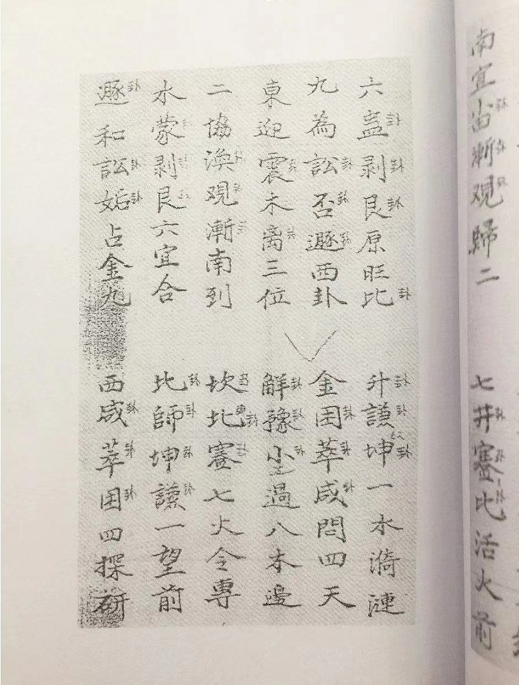 南宜漸观歸二 七井蹇比活火前
六蛊剥艮原旺比 升謙坤一水漪漣
九為訟否遯西卦 金困萃咸問四天
東迎震木离三位 解豫尘過八木邊
二協渙观漸南到 坎比蹇七火令專
水蒙剥艮六宜合 比師坤謙一望前
遯和訟姤占金九 西咸萃困四探研